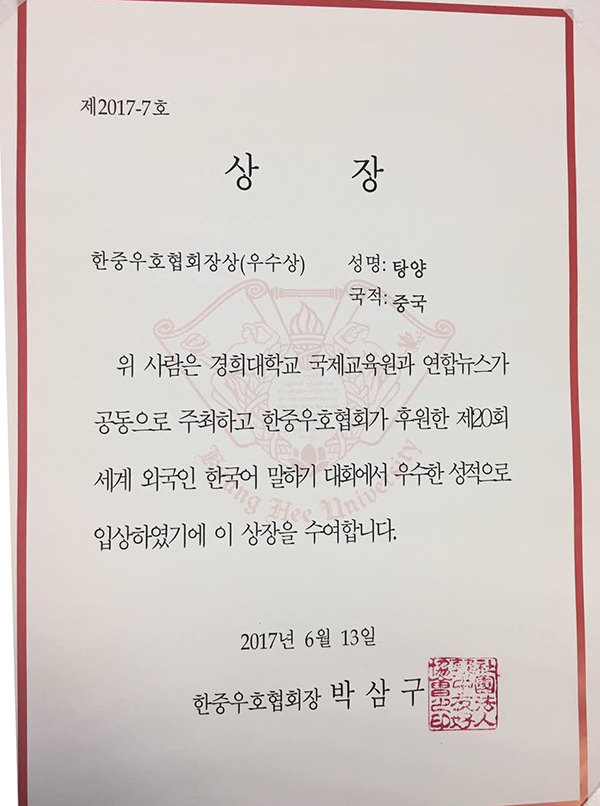 제2017-7호
상 장
한중우호협회장상(우수상) 성명: 탕양
국적: 중국
위 사람은 경희대학교 국제교육원과 연합뉴스가
공동으로 주최하고 한중우호협회가 후원한 제20회
세계 외국인 한국어 말하기 대회에서 우수한 성적으로
입상하였기에 이 상장을 수여합니다.
Kyung Hee University
2017년 6월 13일
한중우호협회장 박삼구
社團法人
韓中友好
協會之印